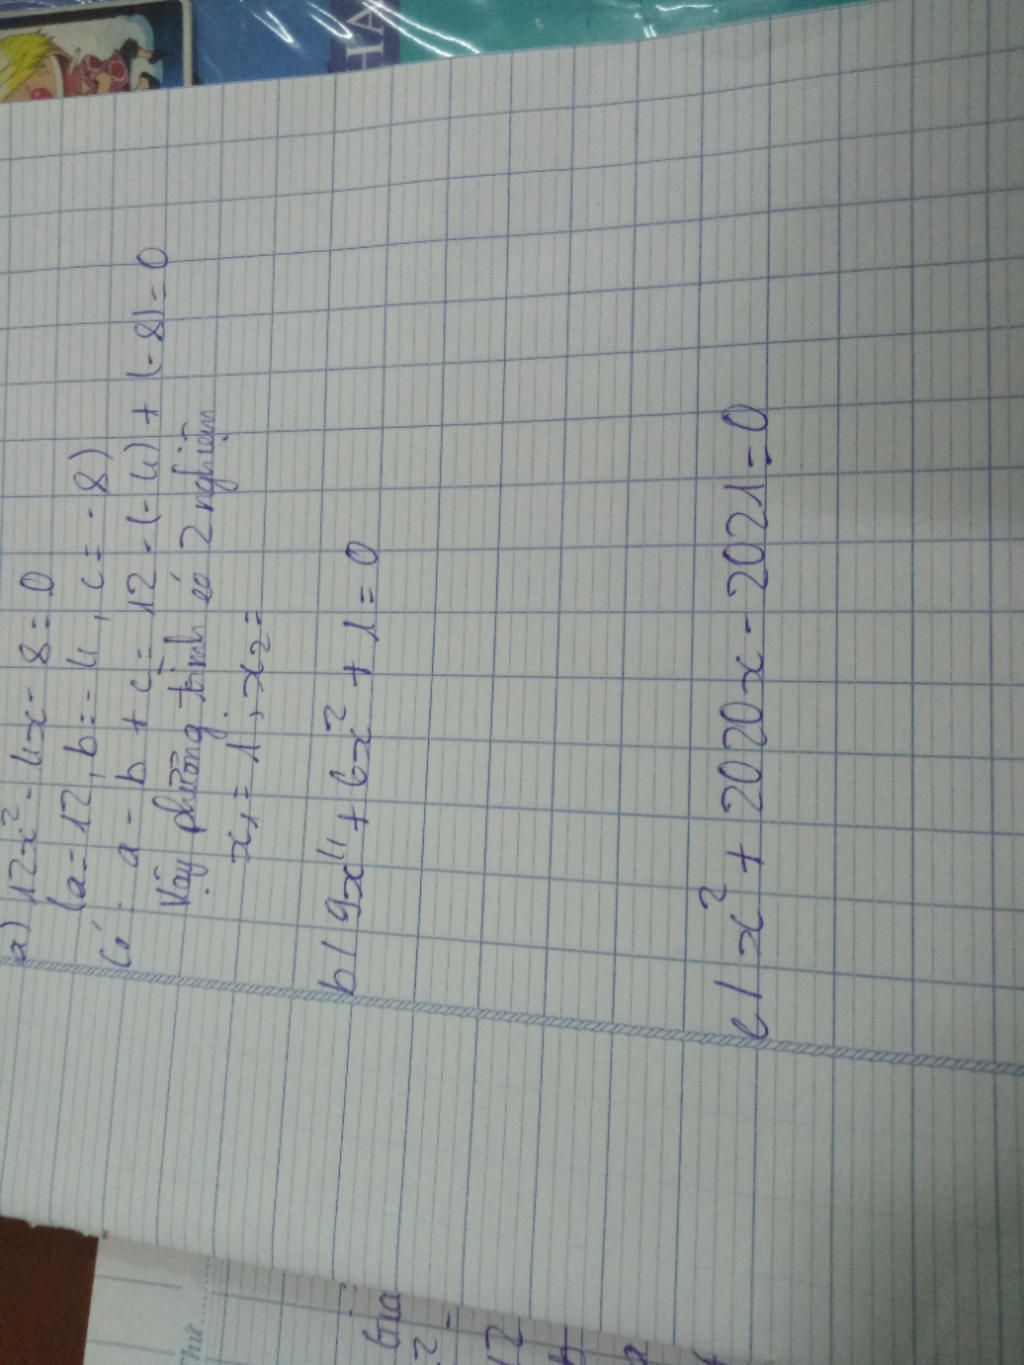 a) 12x² - 4x - 8 = 0
(a = 12, b = - 4, c = - 8)
Có: a - b + c = 12 - (- 4) + (- 8) = 0
Vậy phương trình có 2 nghiệm
x₁ = 1, x₂ =
b/ 9x⁴ + 6x² + 1 = 0
c/ x² + 2020x - 2021 = 0
HIA
Thứ
Gia
2 -
12